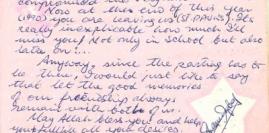 Now at this end of this year
(1990) you are leaving us (ST PAUL'S). It's
really inexplicable how much I'll
miss you! Not only in school but also
later on :-...
Anyway, since the parting has to
be then, I would just like to say
that let the good memories
of our friendship always
remain with both of us.
May Allah bless you and help
you fulfill all your desires.